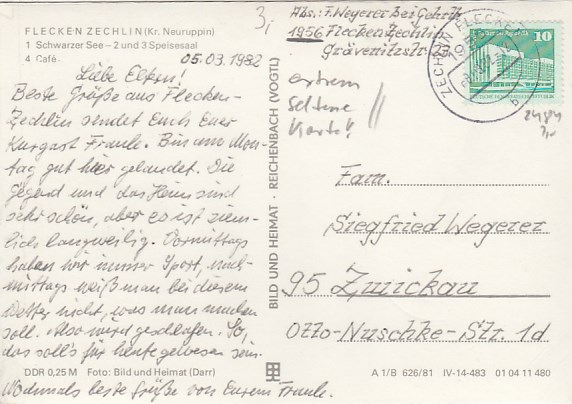 FLECKEN ZECHLIN (Kr. Neuruppin)
1 Schwarzer See – 2 und 3 Speisesaal
4 Café
3,-
05.03.1982
Liebe Eltern!
Beste Grüße aus Flecken-
Zechlin sendet Euch Euer
Kurgast Frank. Bin am Mon-
tag gut hier gelandet. Die
Gegend und das Heim sind
sehr schön, aber es ist ziem-
lich langweilig. Vormittags
haben wir immer Sport, nach-
mittags weiß man bei diesem
Wetter nicht, was man machen
soll. Also wird geschlafen. So,
das soll's für heute gewesen sein.
Nochmals beste Grüße von Eurem Frank.
DDR 0,25 M Foto: Bild und Heimat (Darr)
BILD UND HEIMAT · REICHENBACH (VOGTL)
Abs.: F. Wegerer bei
1956 Flecken Zechlin
Grävenitzstr.
extrem
seltene
Karte!!
ZECHLIN FLECKEN
1956
b
10
Fam.
Siegfried Wegerer
95 Zwickau
Otto-Nuschke-Str. 1d
A 1/B 626/81 IV-14-483 01 04 11 480